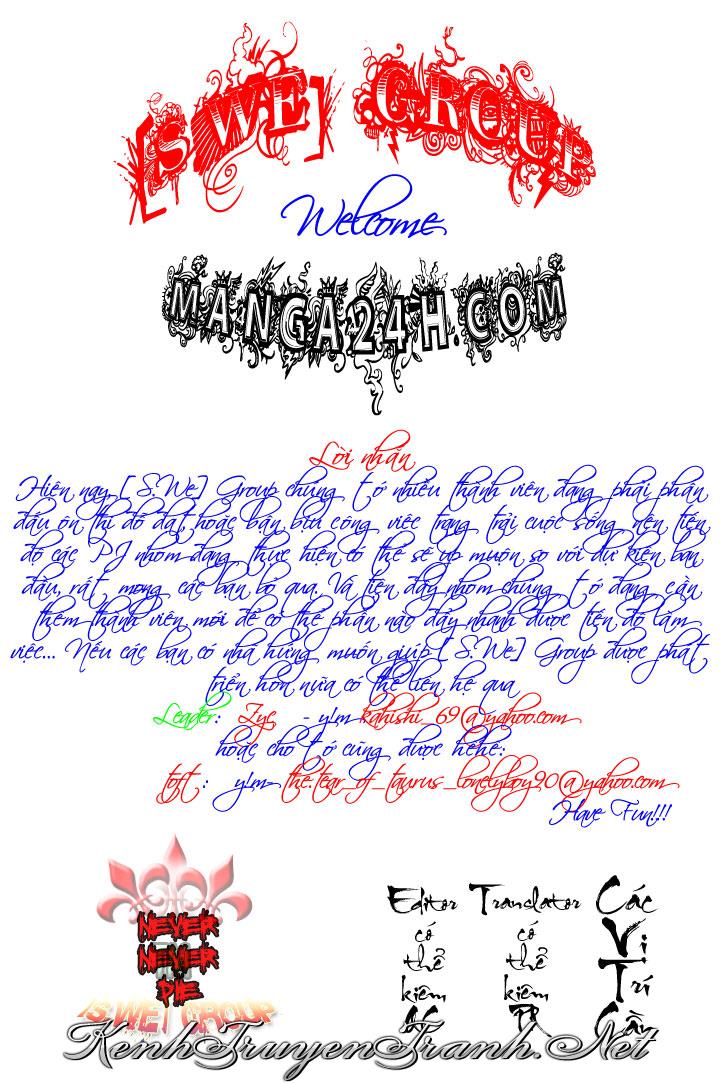 [S.WE] GROUP
Welcome
MANGA24H.COM
Lời nhắn
Hiện nay [ S.We] Group chúng tớ nhiều thành viên đang phải phấn
đấu ôn thi đỗ đạt hoặc bận bịu công việc trang trải cuộc sống nên tiến
độ các PJ nhóm đang thực hiện có thể sẽ up muộn so với dự kiến ban
đầu, rất mong các bạn bỏ qua. Và tiện đây nhóm chúng tớ đang cần
thêm thành viên mới để có thể phần nào đẩy nhanh được tiến độ làm
việc... Nếu các bạn có nhã hứng muốn giúp [ S.We] Group được phát
triển hơn nữa có thể liên hệ qua
Leader: Zyc - y!m kahishi_69@yahoo.com
hoặc cho tớ cũng được hehe:
toft : y!m- the.tear_of_taurus_lonelyboy90@yahoo.com
Have Fun!!!
NEVER
NEVER
DIE
[S.WE] GROUP
Editor có thể kiêm
Translator có thể kiêm
Các Vị Trí Cần
KenhTruyenTranh.Net